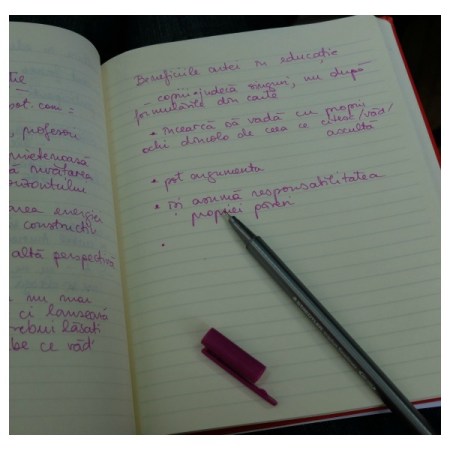 tie
profesori
prietenoasă
ă învățarea
area energiei
constructiv
altă perspectivă
a nu mai
ci lansează
trebui lăsați
be ce văd
Beneficiile artei în educație
copiii judecă singuri, nu după
formulările din carte
• încearcă să vadă cu proprii
ochi dincolo de ceea ce citesc/văd/
ascultă
• pot argumenta
• își asumă responsabilitatea
propriei păreri
•